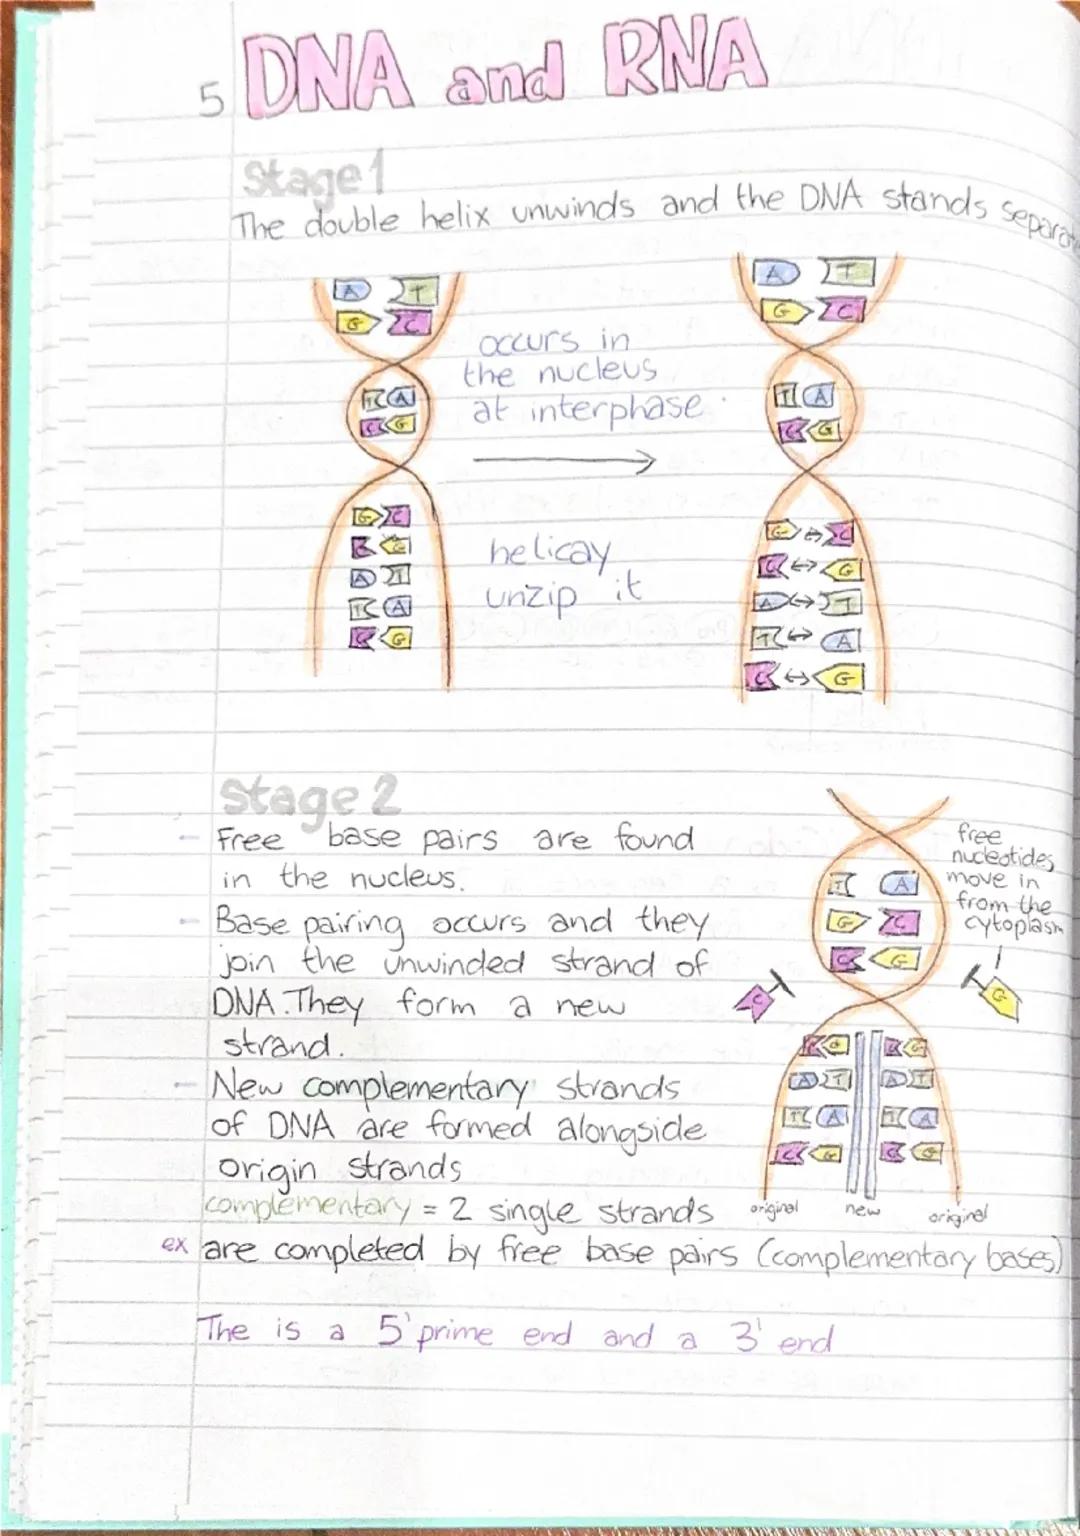 5 DNA and RNA
Stage 1
The double helix unwinds and the DNA stands
A T
G C
T A
C G
G C
C G
A T
T A
C G
occurs in
the nucleus
at interphase
helicay
unzip it
A T
G C
T A
C G
G C
C G
A T
T A
C G
Stage 2
- Free base pairs are found
in the nucleus.
- Base pairing occurs and they
join the unwinded strand of
DNA. They form a new
strand.
- New complementary strands
of DNA are formed alongside
origin strands
complementary = 2 single strands
ex are completed by free base pairs (complementary bases)
The is a 5' prime end and a 3' end
free
nucleotides
move in
from the
cytoplasm
T A
G C
C G
C
G
C G C G
A T A T
T A T A
C G C G
original new original